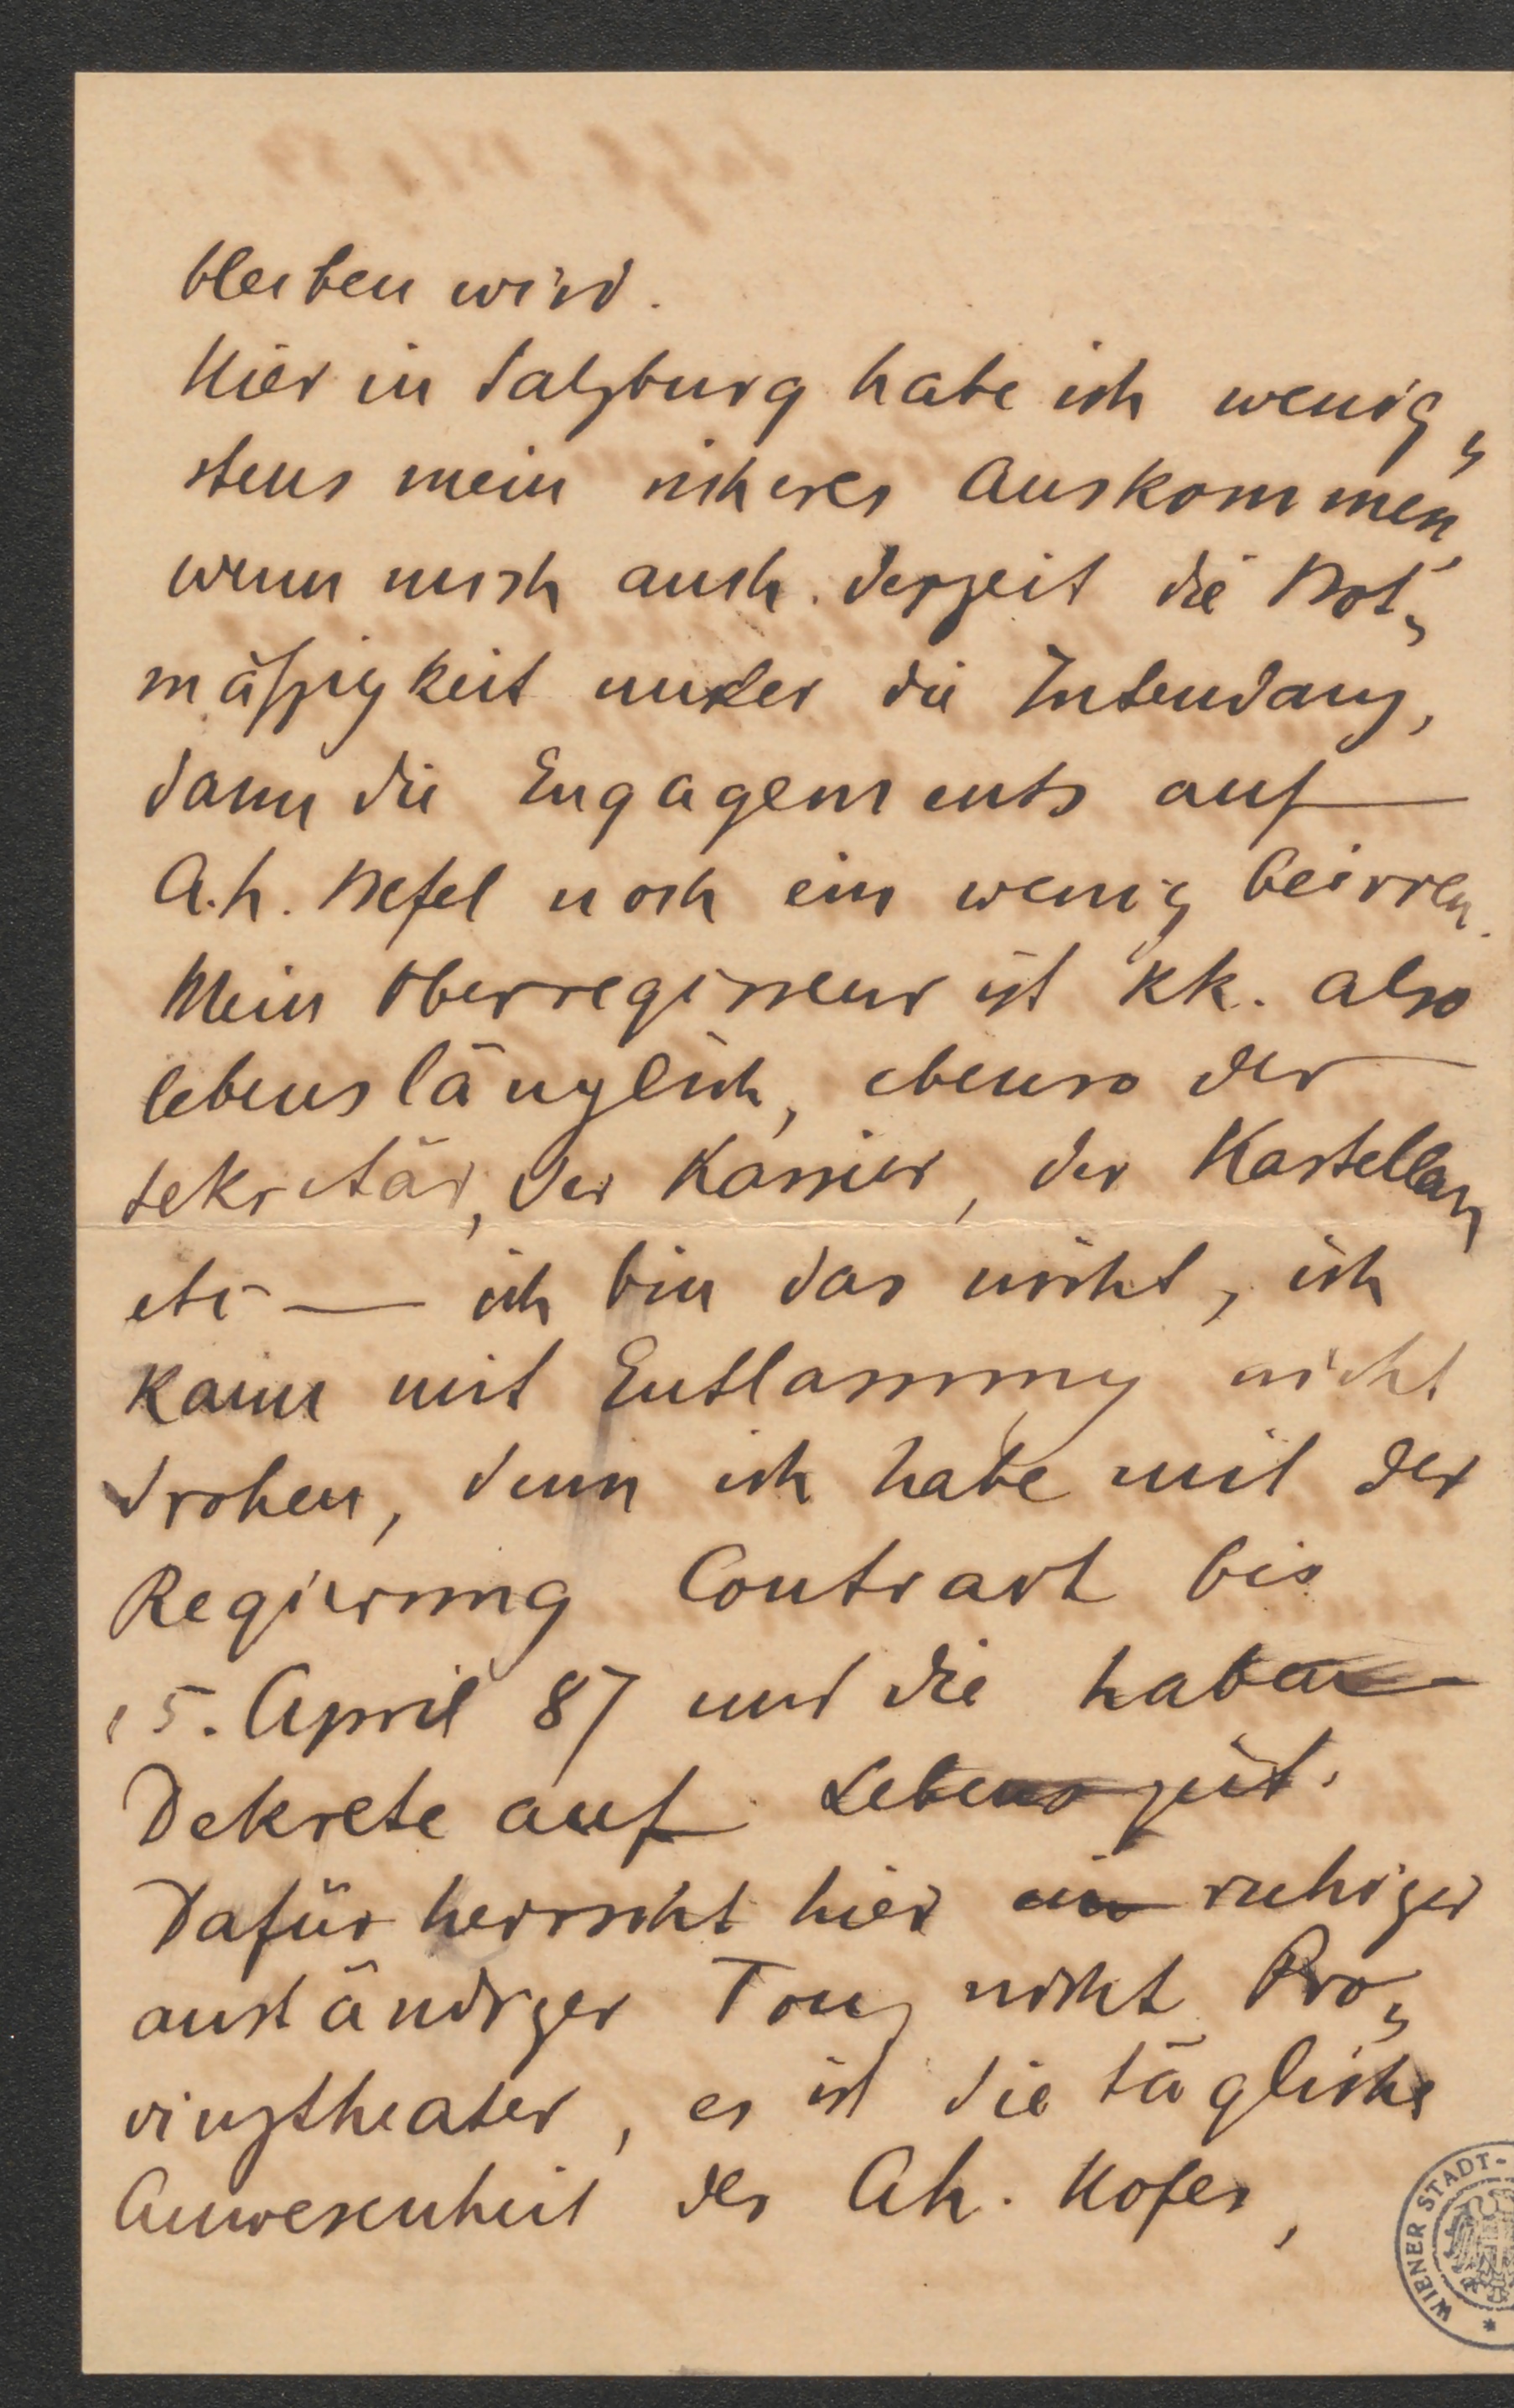 bleiben wird.
Hier in Salzburg habe ich wenig„
stens mein sicheres Auskommen,
wenn mich auch derzeit die Bot„
mäßigkeit unter die Intendanz,
dann die Engagements auf
A.h. Befel noch ein wenig beirren.
Mein Oberregisseur ist kk. also
lebenslänglich, ebenso der
Sekretär, der Kassier, der Kastellan
etc — ich bin das nicht, ich
kann mit Entlassung nicht
drohen, denn ich habe mit der
Regierung Contract bis
15. April 87 und die haben
Dekrete auf Lebenszeit.
Dafür herrscht hier ein ruhiger
anständiger Ton, nicht Pro„
vinztheater, es ist die tägliche
Anwesenheit des Ah. Hofes,
WIENER STADT-